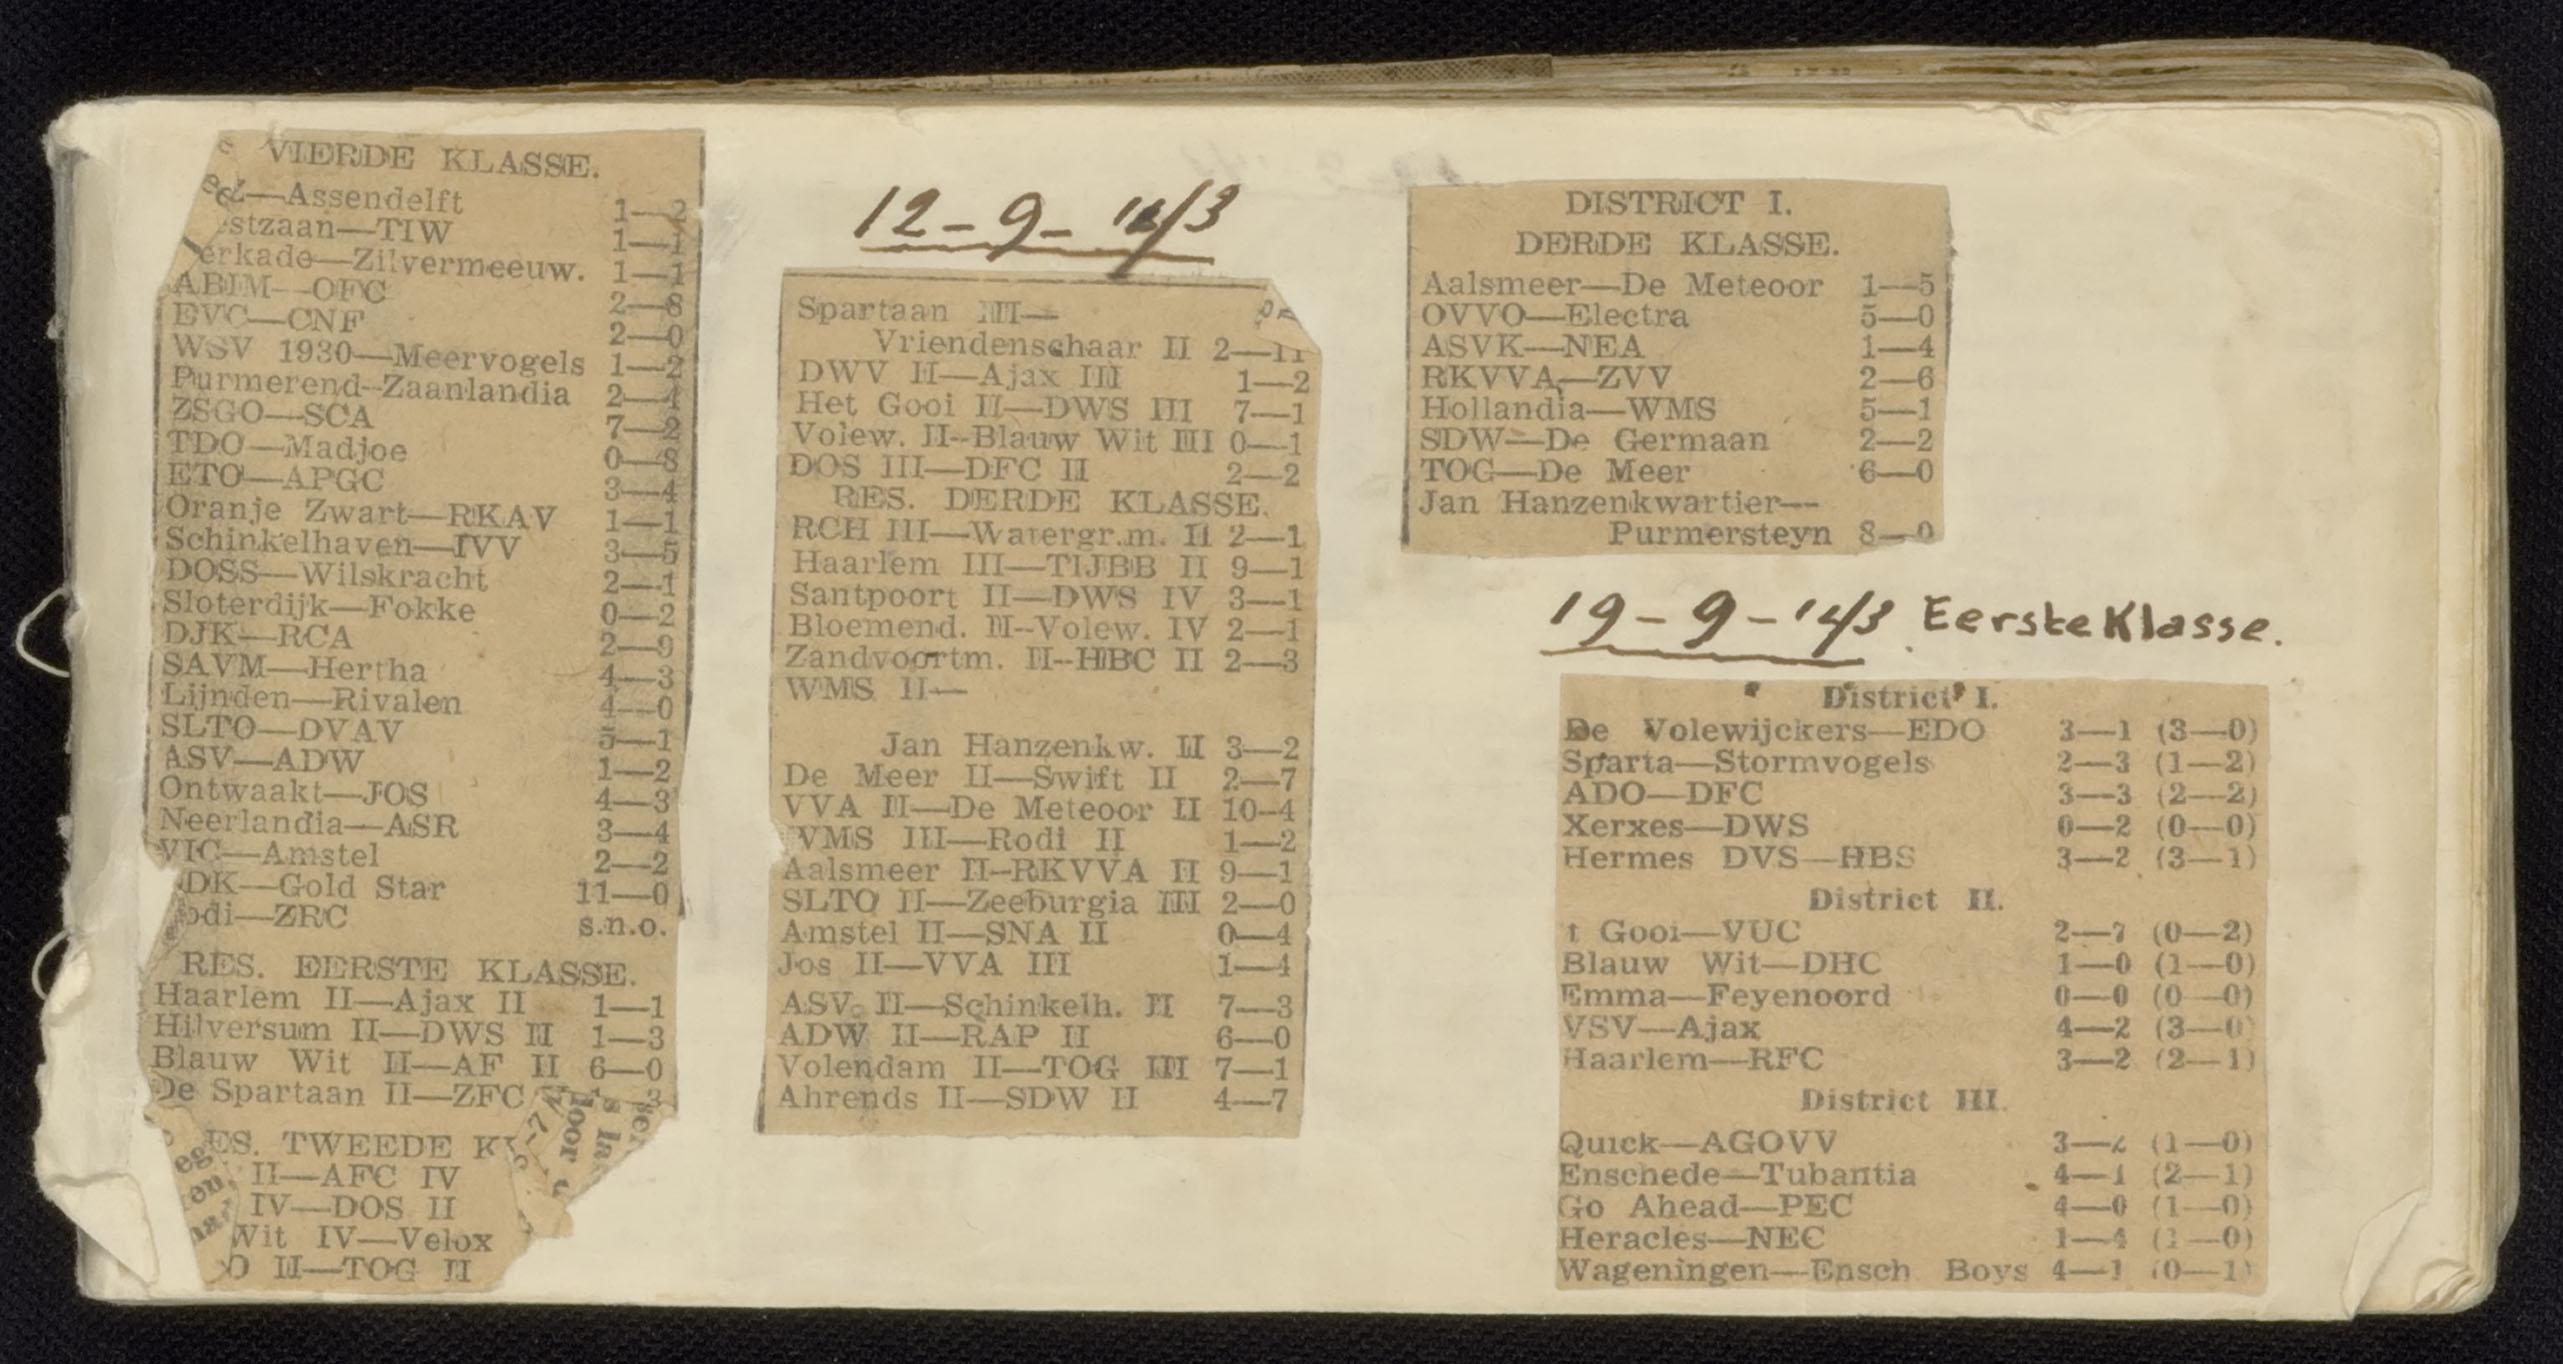 VIERDE KLASSE.
—Assendelft 1—2
estzaan—TIW 1—1
erkade—Zilvermeeuw. 1—1
ABIM—OFC 2—8
EVC—CNF 2—0
WSV 1930—Meervogels 1—2
Purmerend--Zaanlandia 2—4
ZSGO—SCA 7—2
TDO—Madjoe 0—8
ETO—APGC 3—4
Oranje Zwart—RKAV 1—1
Schinkelhaven—IVV 3—5
DOSS—Wilskracht 2—1
Sloterdijk—Fokke 0—2
DJK—RCA 2—9
SAVM—Hertha 4—3
Lijnden—Rivalen 4—0
SLTO—DVAV 5—1
ASV—ADW 1—2
Ontwaakt—JOS 4—3
Neerlandia—ASR 3—4
VIC—Amstel 2—2
DK—Gold Star 11—0
odi—ZRC s.n.o.
RES. EERSTE KLASSE.
Haarlem II—Ajax II 1—1
Hilversum II—DWS II 1—3
Blauw Wit II—AF II 6—0
De Spartaan II—ZFC 3
ES. TWEEDE K
II—AFC IV
IV—DOS II
Wit IV—Velox
O II—TOG II
12-9-'43
Spartaan III—
Vriendenschaar II 2—11
DWV II—Ajax III 1—2
Het Gooi II—DWS III 7—1
Volew. II--Blauw Wit III 0—1
DOS III—DFC II 2—2
RES. DERDE KLASSE.
RCH III—Watergr.m. II 2—1
Haarlem III—TIJBB II 9—1
Santpoort II—DWS IV 3—1
Bloemend. II--Volew. IV 2—1
Zandvoortm. II--HBC II 2—3
WMS II—
Jan Hanzenkw. II 3—2
De Meer II—Swift II 2—7
VVA II—De Meteoor II 10—4
VMS III—Rodi II 1—2
Aalsmeer II--RKVVA II 9—1
SLTO II—Zeeburgia III 2—0
Amstel II—SNA II 0—4
Jos II—VVA III 1—4
ASV. II—Schinkelh. II 7—3
ADW II—RAP II 6—0
Volendam II—TOG III 7—1
Ahrends II—SDW II 4—7
DISTRICT I.
DERDE KLASSE.
Aalsmeer—De Meteoor 1—5
OVVO—Electra 5—0
ASVK—NEA 1—4
RKVVA—ZVV 2—6
Hollandia—WMS 5—1
SDW—De Germaan 2—2
TOG—De Meer 6—0
Jan Hanzenkwartier—
Purmersteyn 8—0
19-9-'43 Eerste Klasse.
District I.
De Volewijckers—EDO 3—1 (3—0)
Sparta—Stormvogels 2—3 (1—2)
ADO—DFC 3—3 (2—2)
Xerxes—DWS 0—2 (0—0)
Hermes DVS—HBS 3—2 (3—1)
District II.
t Gooi—VUC 2—7 (0—2)
Blauw Wit—DHC 1—0 (1—0)
Emma—Feyenoord 0—0 (0—0)
VSV—Ajax 4—2 (3—0)
Haarlem—RFC 3—2 (2—1)
District III.
Quick—AGOVV 3—2 (1—0)
Enschede—Tubantia 4—1 (2—1)
Go Ahead—PEC 4—0 (1—0)
Heracles—NEC 1—4 (1—0)
Wageningen—Ensch Boys 4—1 (0—1)